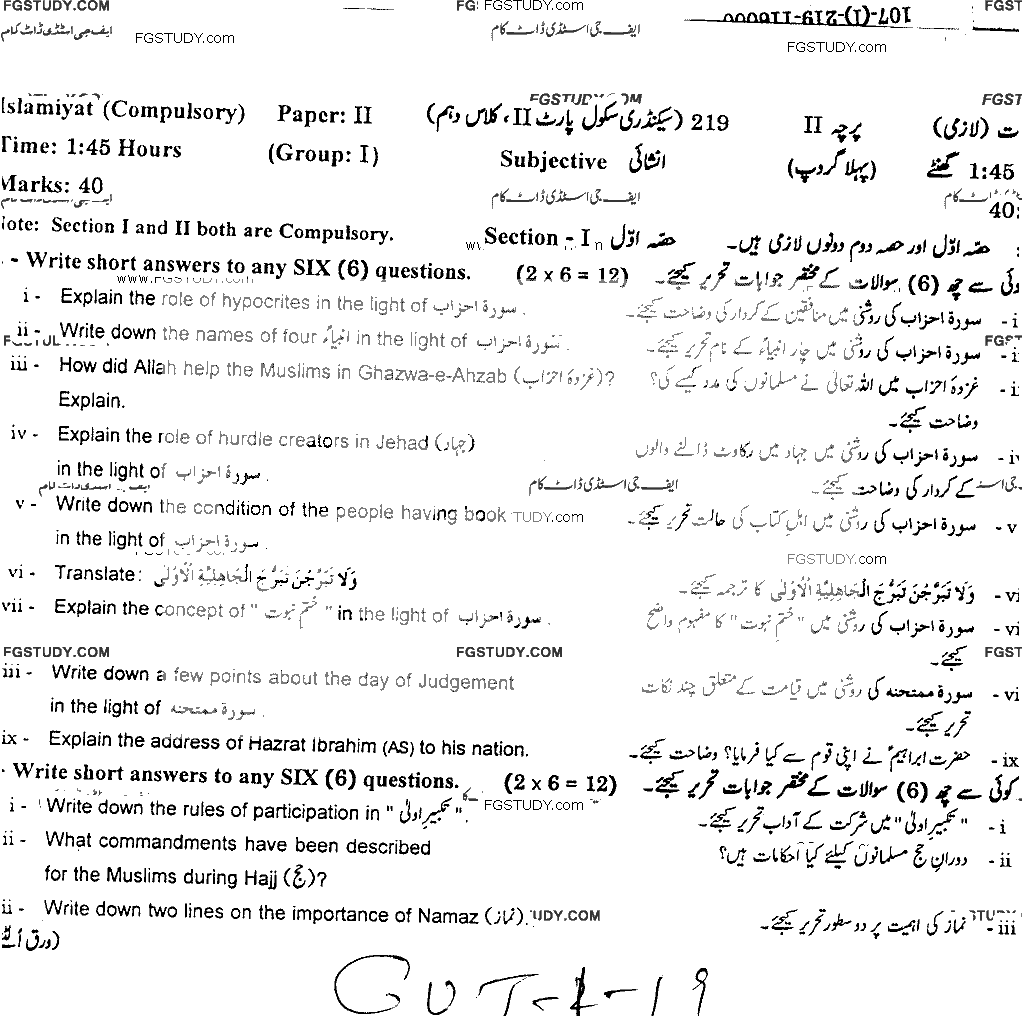 FGSTUDY.COM FGSTUDY.COM FGSTUDY
ایف جی اسٹڈی ڈاٹ کام FGSTUDY.com ایف جی اسٹڈی ڈاٹ کام 107-(I)-219-110000
FGSTUDY.com
FGSTUDY.COM FGST
Islamiyat (Compulsory) Paper: II 219 (سیکنڈری سکول پارٹ II، کلاس دہم) پرچہ II ت (لازمی)
Time: 1:45 Hours (Group: I) Subjective انشائی (پہلا گروپ) 1:45 گھنٹے
Marks: 40 40:
ایف جی اسٹڈی ڈاٹ کام
Note: Section I and II both are Compulsory. Section - I حصّہ اوّل حصّہ اوّل اور حصہ دوم دونوں لازمی ہیں۔
- Write short answers to any SIX (6) questions. (2 x 6 = 12) وئی سے چھ (6) سوالات کے مختصر جوابات تحریر کیجئے۔
www.FGSTUDY.com
i - Explain the role of hypocrites in the light of سورۃ احزاب . سورۃ احزاب کی روشنی میں منافقین کے کردار کی وضاحت کیجئے۔ - i
ii - Write down the names of four انبیاءؑ in the light of سورۃ احزاب . سورۃ احزاب کی روشنی میں چار انبیاءؑ کے نام تحریر کیجئے۔ - i
iii - How did Allah help the Muslims in Ghazwa-e-Ahzab (غزوۂ احزاب)? غزوۂ احزاب میں اللہ تعالیٰ نے مسلمانوں کی مدد کیسے کی؟ - i
Explain. وضاحت کیجئے۔
iv - Explain the role of hurdle creators in Jehad (جہاد) سورۃ احزاب کی روشنی میں جہاد میں رکاوٹ ڈالنے والوں - iv
in the light of سورۃ احزاب . کے کردار کی وضاحت کیجئے۔
ایف جی اسٹڈی ڈاٹ کام
v - Write down the condition of the people having book TUDY.com سورۃ احزاب کی روشنی میں اہلِ کتاب کی حالت تحریر کیجئے۔ - v
in the light of سورۃ احزاب .
FGSTUDY.com
vi - Translate: وَلَا تَبَرَّجْنَ تَبَرُّجَ الْجَاهِلِيَّةِ الْاُوْلٰى وَلَا تَبَرَّجْنَ تَبَرُّجَ الْجَاهِلِيَّةِ الْاُوْلٰى کا ترجمہ کیجئے۔ - vi
vii - Explain the concept of " ختمِ نبوت " in the light of سورۃ احزاب . سورۃ احزاب کی روشنی میں "ختمِ نبوت" کا مفہوم واضح - vi
کیجئے۔
FGSTUDY.COM FGSTUDY.COM FGST
iii - Write down a few points about the day of Judgement سورۃ ممتحنہ کی روشنی میں قیامت کے متعلق چند نکات - vi
in the light of سورۃ ممتحنہ . تحریر کیجئے۔
ix - Explain the address of Hazrat Ibrahim (AS) to his nation. حضرت ابراہیمؑ نے اپنی قوم سے کیا فرمایا؟ وضاحت کیجئے۔ - ix
- Write short answers to any SIX (6) questions. (2 x 6 = 12) کوئی سے چھ (6) سوالات کے مختصر جوابات تحریر کیجئے۔
i - Write down the rules of participation in " تکبیرِ اولیٰ ". FGSTUDY.com "تکبیرِ اولیٰ" میں شرکت کے آداب تحریر کیجئے۔ - i
ii - What commandments have been described دورانِ حج مسلمانوں کیلئے کیا احکامات ہیں؟ - ii
for the Muslims during Hajj (حج)?
ii - Write down two lines on the importance of Namaz (نماز). TUDY.COM نماز کی اہمیت پر دو سطور تحریر کیجئے۔ - iii
(ورق اُلٹئے
GUJ-1-19